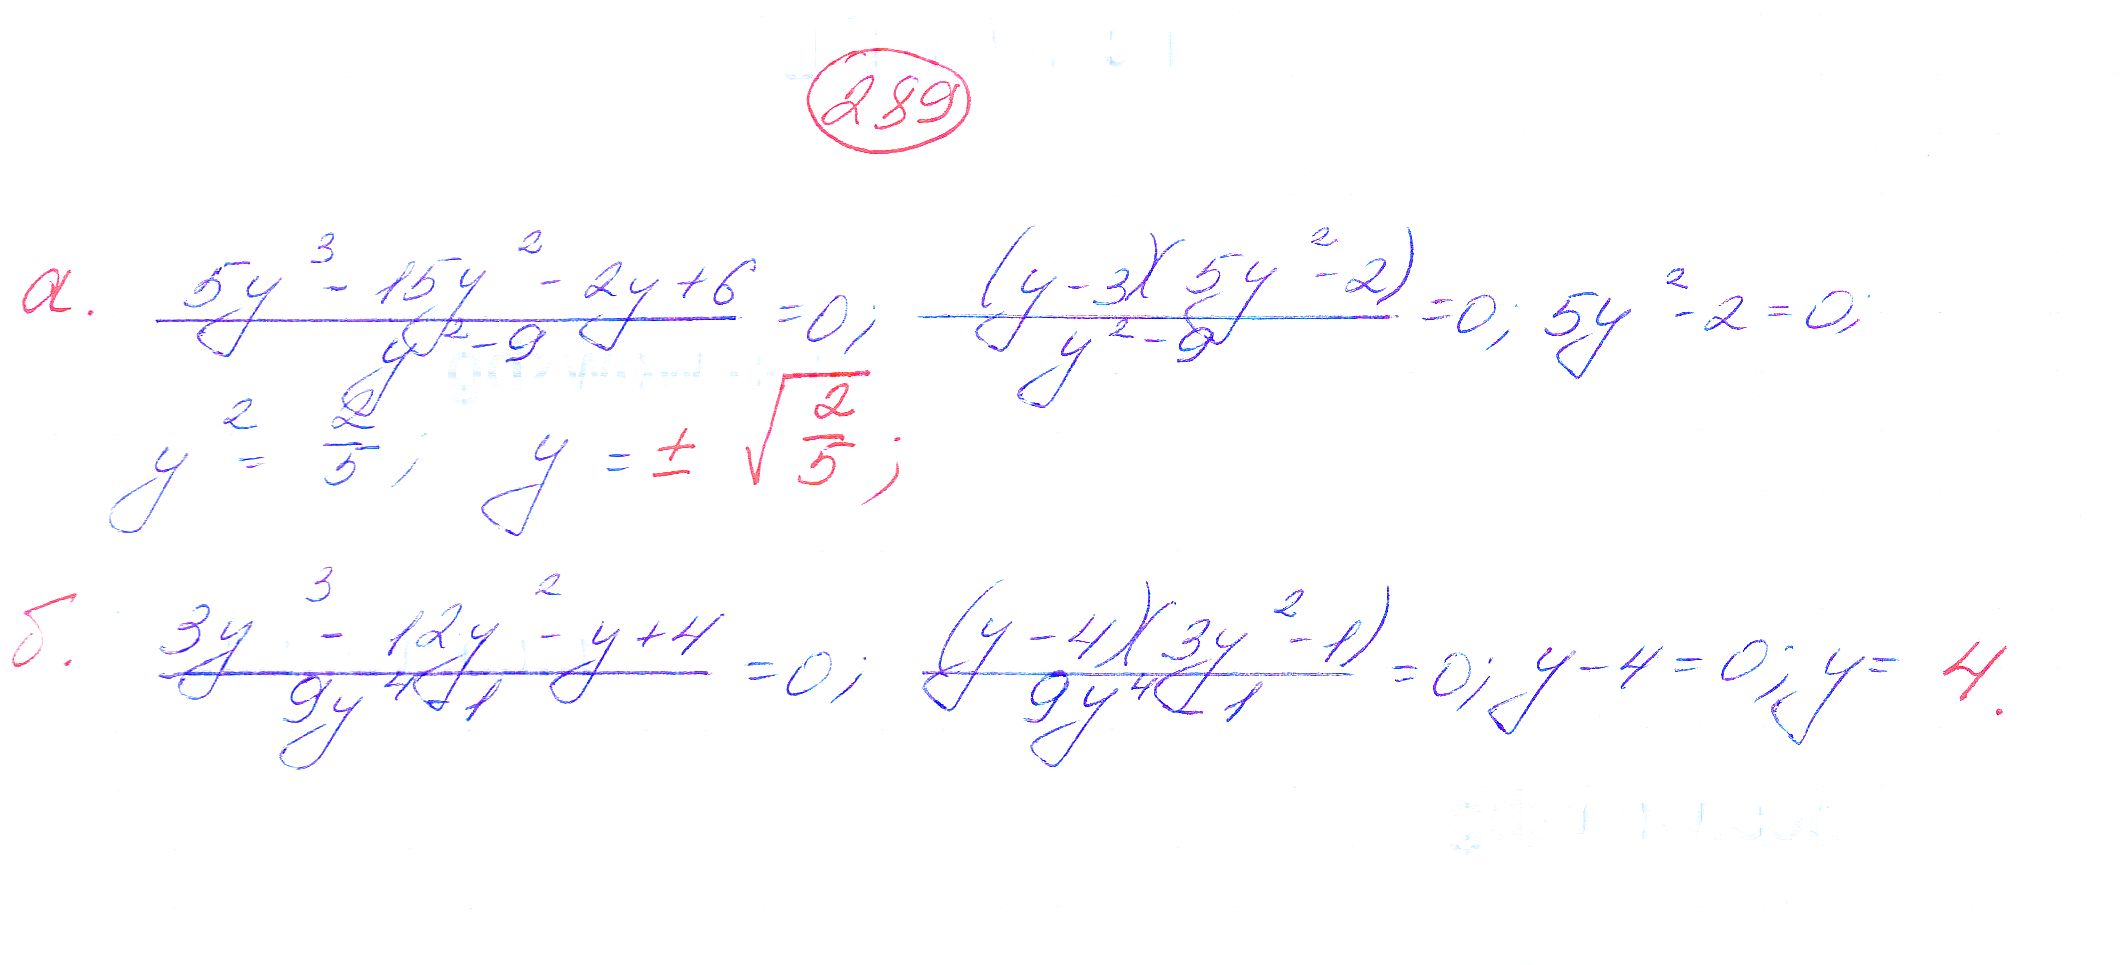 289
а. (5y³ - 15y² - 2y + 6)/(y² - 9) = 0; (y - 3)(5y² - 2)/(y² - 9) = 0; 5y² - 2 = 0;
y² = 2/5; y = ± √(2/5);
б. (3y³ - 12y² - y + 4)/(9y⁴ - 1) = 0; (y - 4)(3y² - 1)/(9y⁴ - 1) = 0; y - 4 = 0; y = 4.